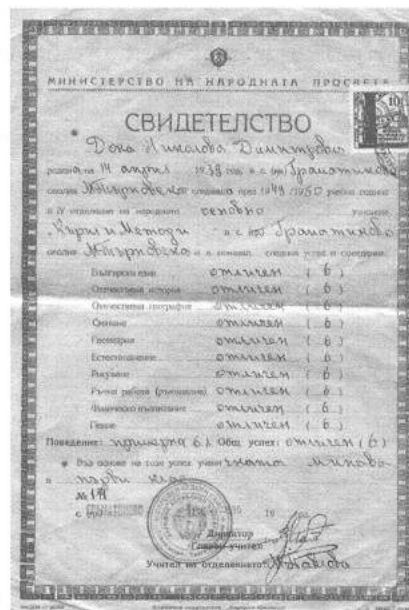 МИНИСТЕРСТВО НА НАРОДНАТА ПРОСВЕТА
10
СВИДЕТЕЛСТВО
Дона Николова Димитрова
родена на 14 април 1938 год. в с. (гр.) Граматиково
околия М.Търновска следвала през 1949/1950 учебна година
в IV отделение на народното основно училище
„Кирил и Методи в с. (гр.) Граматиково
околия М.Търновска и е показал следния успех и поведение:
Български език отличен (6)
Отечествена история отличен (6)
Отечествена география отличен (6)
Смятане отличен (6)
Геометрия отличен (6)
Естествознание отличен (6)
Рисуване отличен (6)
Ръчна работа (ръкоделие) отличен (6)
Физическо възпитание отличен (6)
Пение отличен (6)
Поведение: примерно 6) Общ успех: отличен (6)
Въз основа на този успех ученичката минава
в първи клас
№
с. (гр.) 19
Директор
Главен учител
Учител на отделението: